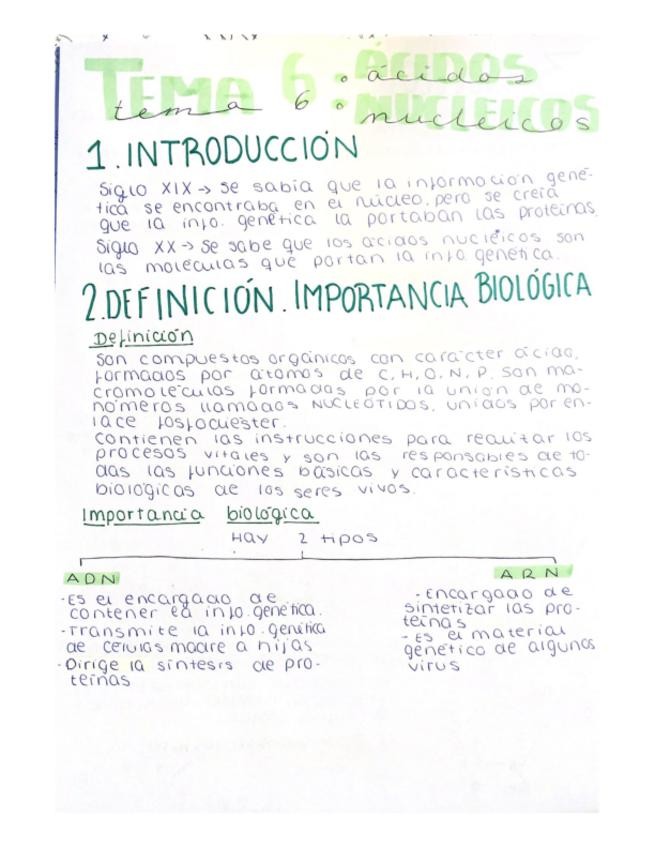 TEMA 6: ÁCIDOS NUCLEICOS
tema 6: ácidos nucleicos
1. INTRODUCCIÓN
Siglo XIX → se sabía que la información gené-
tica se encontraba en el núcleo, pero se creía
que la info. genética la portaban las proteínas.
Siglo XX → se sabe que los ácidos nucléicos son
las moléculas que portan la info. genética.
2. DEFINICIÓN. IMPORTANCIA BIOLÓGICA
Definición
Son compuestos orgánicos con carácter ácido,
formados por átomos de C, H, O, N, P. Son ma-
cromoléculas formadas por la unión de mo-
nómeros llamados NUCLEÓTIDOS, unidos por en-
lace fosfodiester.
Contienen las instrucciones para realizar los
procesos vitales y son las responsables de to-
das las funciones básicas y características
biológicas de los seres vivos.
Importancia biológica
Hay 2 tipos
ADN
- Es el encargado de
contener la info. genética.
- Transmite la info. genética
de células madre a hijas
- Dirige la síntesis de pro-
teínas
ARN
- Encargado de
sintetizar las pro-
teínas
- Es el material
genético de algunos
virus